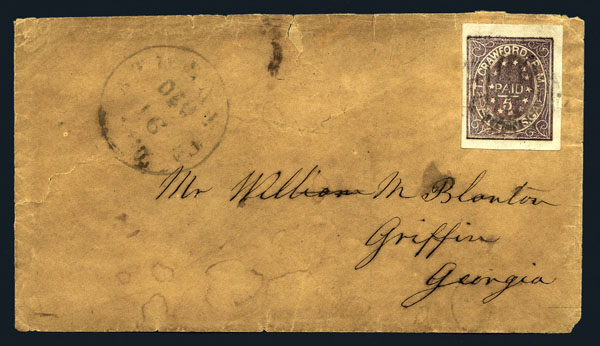 T. CRAWFORD, P.M
PAID
5
Mr William M Blanton
Griffin
Georgia